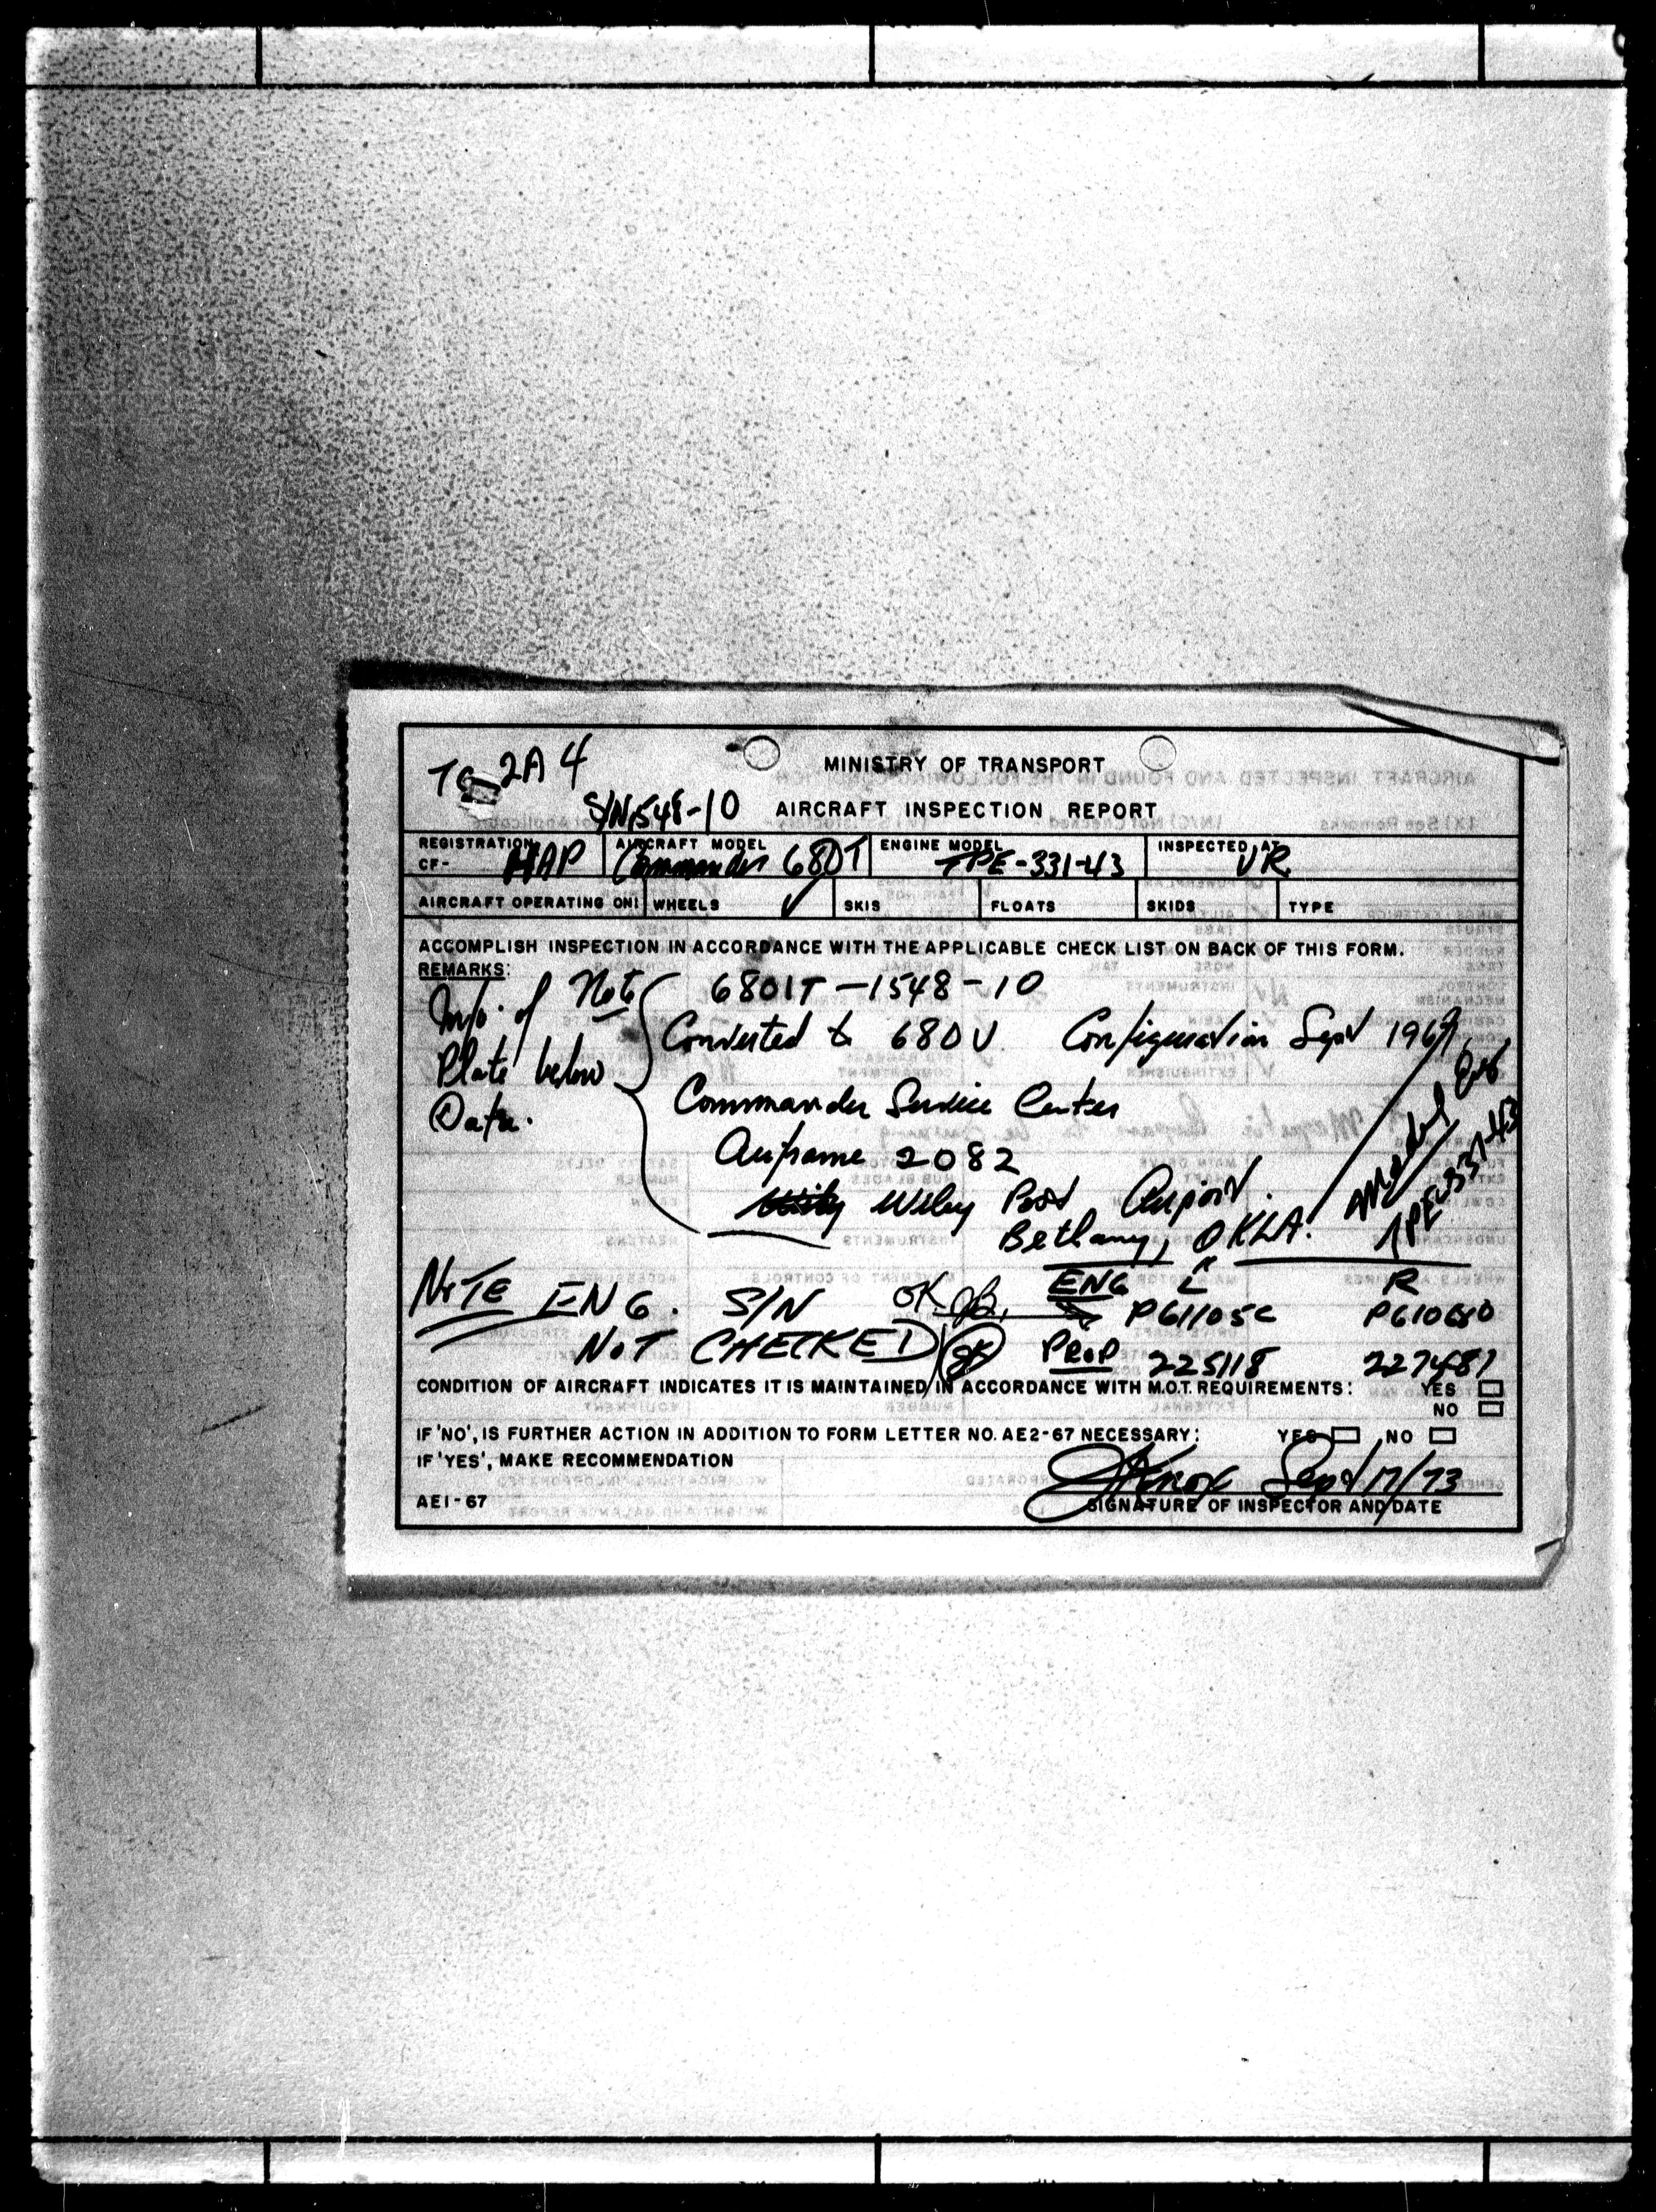 2A4
MINISTRY OF TRANSPORT
S/N 1548-10 AIRCRAFT INSPECTION REPORT
REGISTRATION CF- HAP AIRCRAFT MODEL Commander 680T ENGINE MODEL TPE-331-43 INSPECTED AT VR
AIRCRAFT OPERATING ON: WHEELS ✓ SKIS FLOATS SKIDS TYPE
ACCOMPLISH INSPECTION IN ACCORDANCE WITH THE APPLICABLE CHECK LIST ON BACK OF THIS FORM.
REMARKS:
Note 680 T-1548-10
Converted to 680V Configuration Sept 1969
Plate below
Data.
Commander Service Center
Airframe 2082
Wiley Post Airport.
Bethany, OKLA.
Model
TPE-331-43
NOTE ENG. S/N OK ENG L R
P61105C P610680
NOT CHECKED PROP 225118 227487
CONDITION OF AIRCRAFT INDICATES IT IS MAINTAINED IN ACCORDANCE WITH M.O.T. REQUIREMENTS: YES
NO
IF 'NO', IS FURTHER ACTION IN ADDITION TO FORM LETTER NO. AE2-67 NECESSARY: YES NO
IF 'YES', MAKE RECOMMENDATION
Sept 17/73
AE1-67 SIGNATURE OF INSPECTOR AND DATE